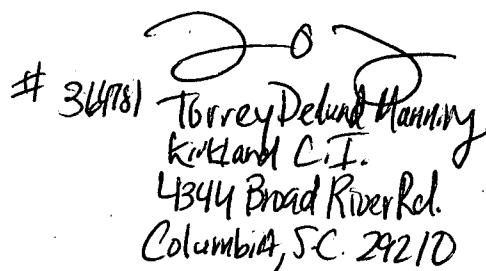 # 364781 Torrey Delund Manning
Kirkland C.I.
4344 Broad River Rd.
Columbia, S.C. 29210